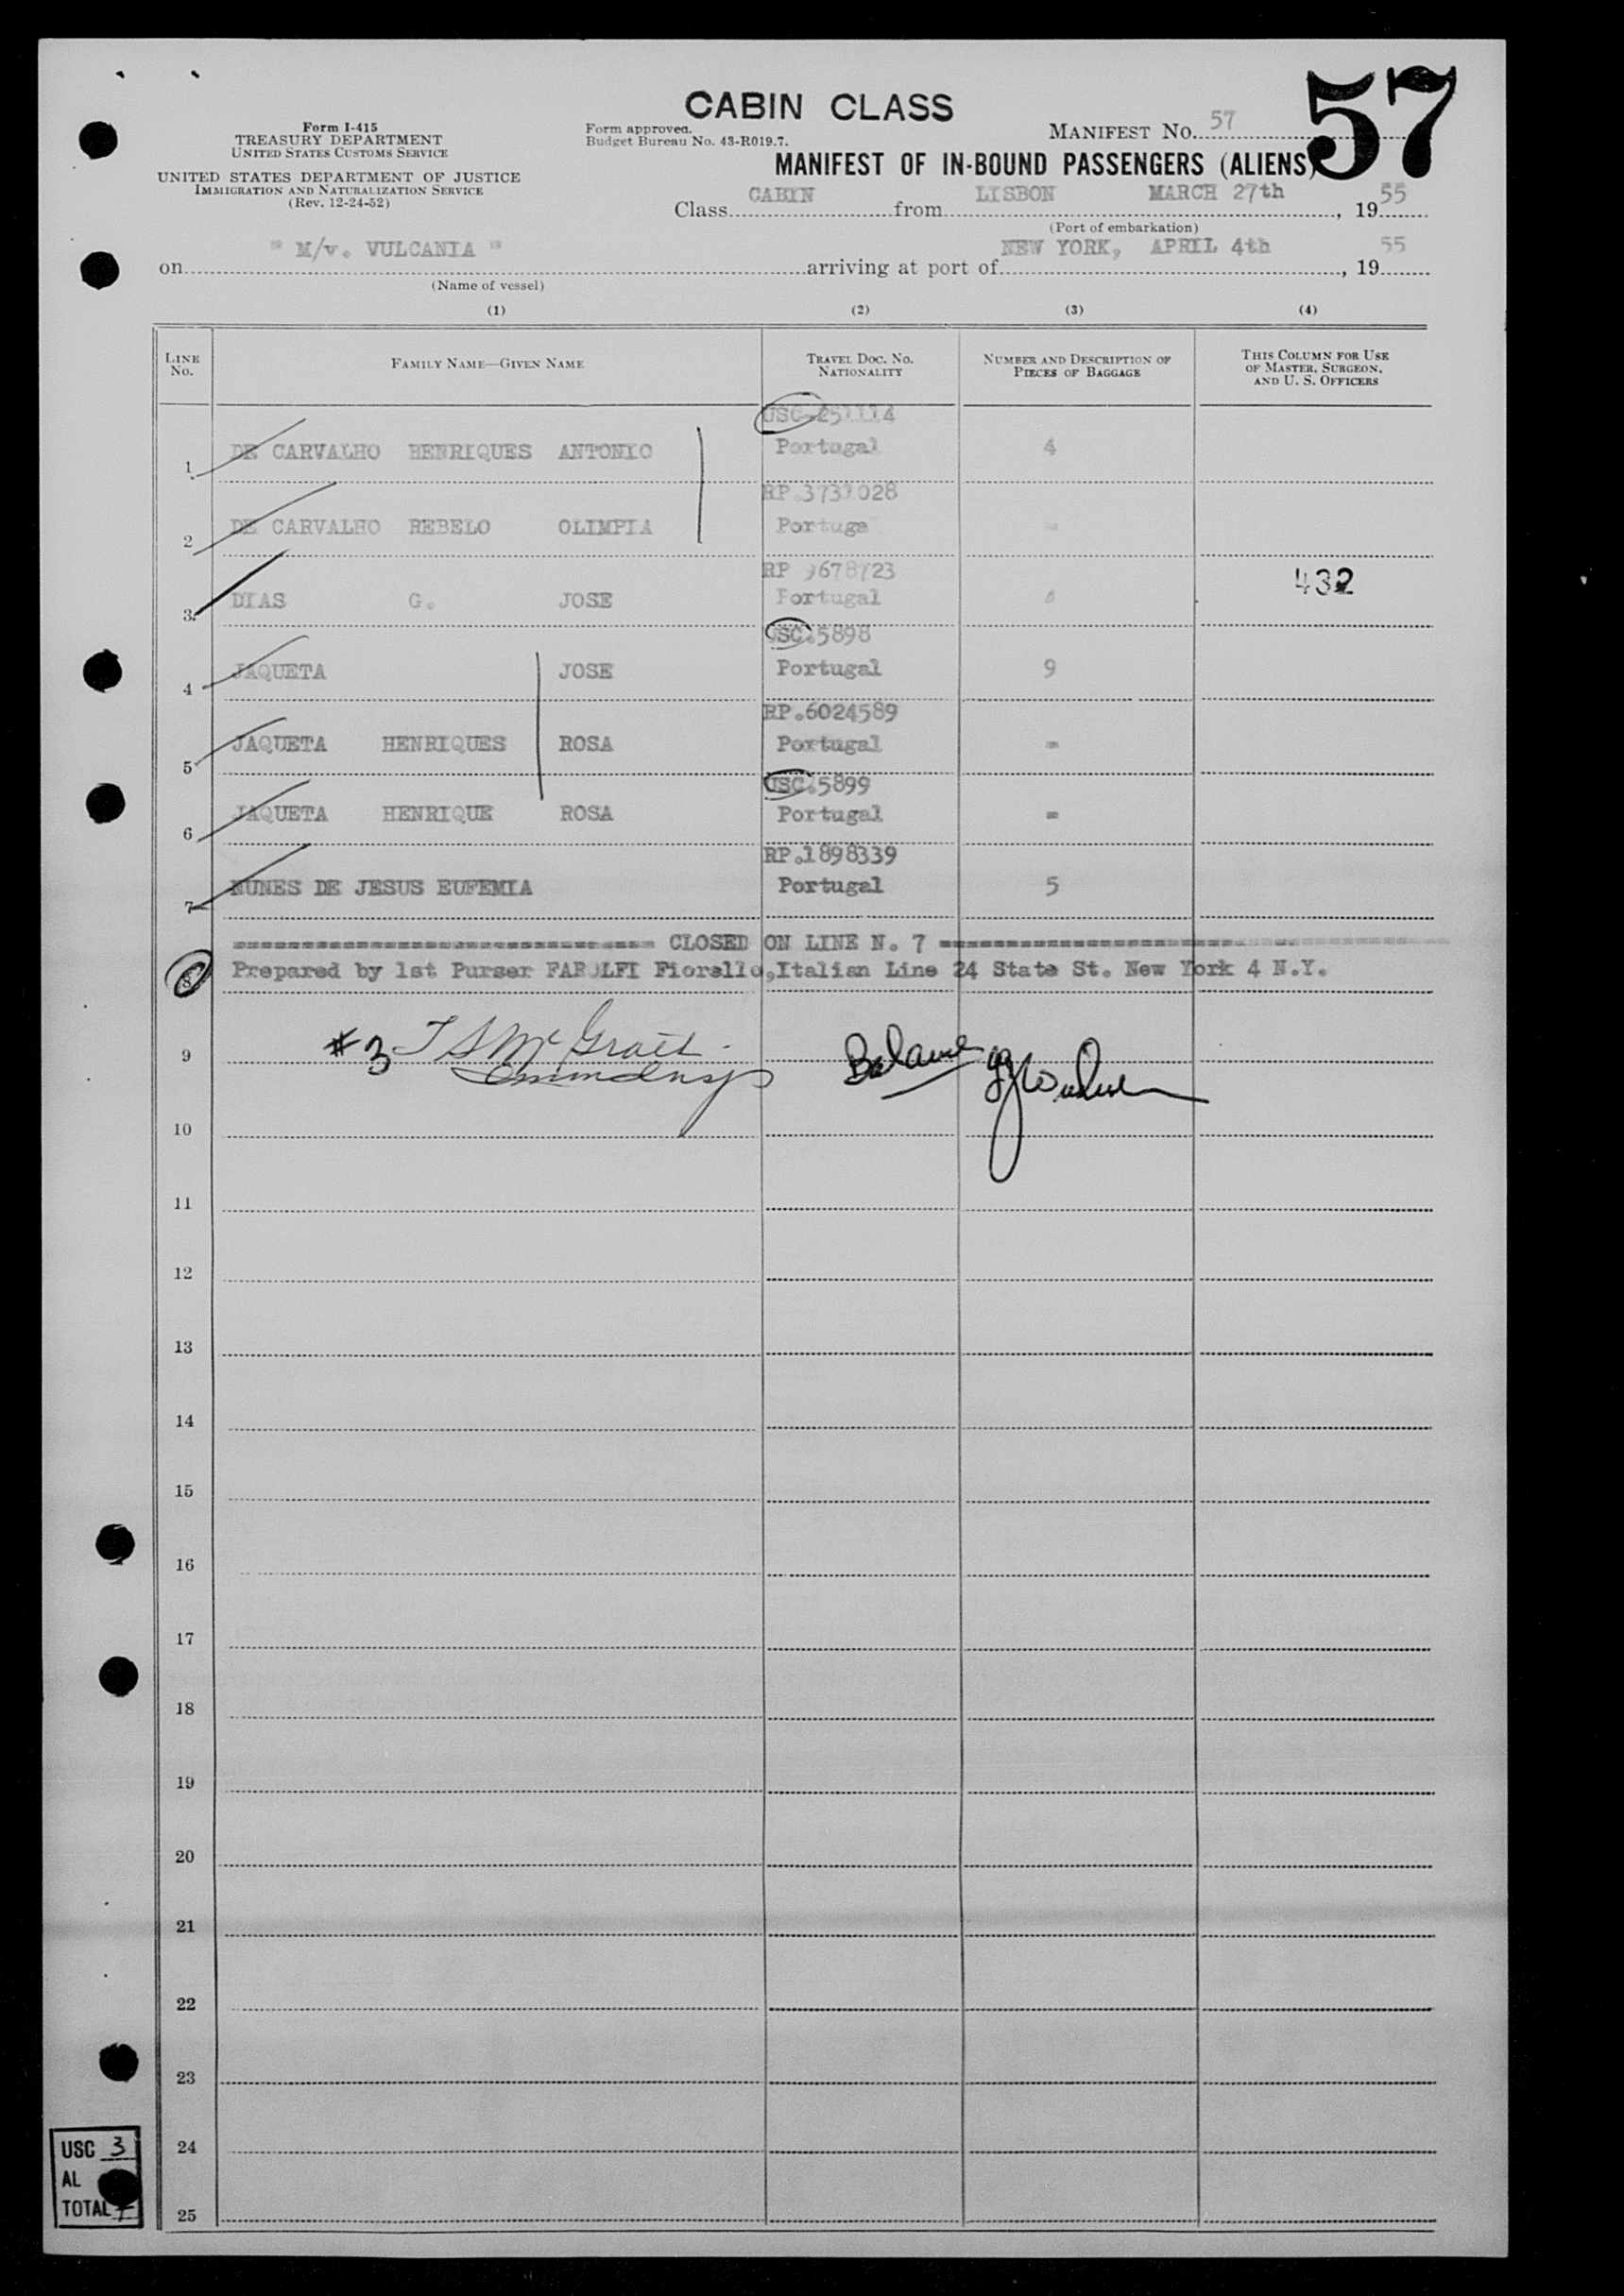 CABIN CLASS
57
Form I-415
TREASURY DEPARTMENT
UNITED STATES CUSTOMS SERVICE
UNITED STATES DEPARTMENT OF JUSTICE
IMMIGRATION AND NATURALIZATION SERVICE
(Rev. 12-24-52)
Form approved.
Budget Bureau No. 43-R019.7.
MANIFEST NO. 57
MANIFEST OF IN-BOUND PASSENGERS (ALIENS)
Class CABIN from LISBON MARCH 27th, 1955
(Port of embarkation)
on " M/v. VULCANIA " arriving at port of NEW YORK, APRIL 4th, 1955
(Name of vessel)
(1) (2) (3) (4)
LINE NO. FAMILY NAME—GIVEN NAME TRAVEL DOC. NO. NATIONALITY NUMBER AND DESCRIPTION OF PIECES OF BAGGAGE THIS COLUMN FOR USE OF MASTER, SURGEON, AND U. S. OFFICERS
USC-251114
1 DE CARVALHO HENRIQUES ANTONIO Portugal 4
RP.3731028
2 DE CARVALHO REBELO OLIMPIA Portuga -
RP 9678723
3 DIAS G. JOSE Portugal 432
USC.5898
4 JAQUETA JOSE Portugal 9
RP.6024589
5 JAQUETA HENRIQUES ROSA Portugal =
USC.5899
6 JAQUETA HENRIQUE ROSA Portugal =
RP.1898339
7 NUNES DE JESUS EUFEMIA Portugal 5
CLOSED ON LINE N. 7
8 Prepared by 1st Purser FAROLFI Fiorello, Italian Line 24 State St. New York 4 N.Y.
9 #3 T S McGrath Balance
10
11
12
13
14
15
16
17
18
19
20
21
22
23
24
25
USC 3
AL
TOTAL 7